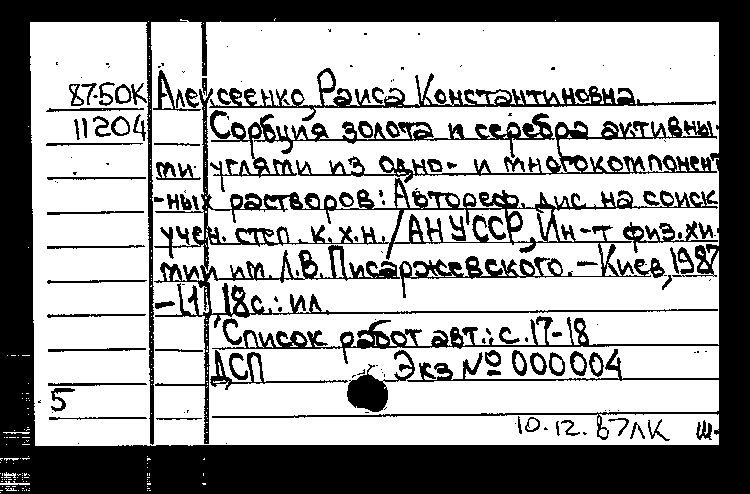 87-50К Алексеенко, Раиса Константиновна.
11204 Сорбция золота и серебра активны-
ми углями из одно- и многокомпонент
-ных растворов: Автореф. дис. на соиск
учен. степ. к.х.н. /АН УССР, Ин-т физ.хи-
мии им. Л.В. Писаржевского. – Киев, 1987
– [1] 18 с.: ил.
Список работ авт.: с. 17-18
ДСП Экз № 000004
5
10.12.87 ЛК Ш-